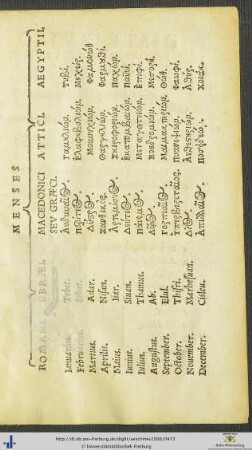 MENSES
ROMANI EBRAEI MACEDONICI SEV GRÆCI. ATTICI AEGYPTII
Ianuarius. Αὐδυναῖος Γαμηλιών. Τυβί.
Februarius. Περίτιος Ἐλαφηβολιών. Μεχείρ.
Martius. Adar. Μουνηχιών. Φαμενώθ
Aprilis. Nisan. Ξανθικός. Θαργηλιών. Φαρμουθί.
Maius. Iiar. Ἀρτεμίσιος Σκιροφοριών. Παχών.
Iunius. Siuan. Δαίσιος Ἑκατομβαιών. Παϋνί.
Iulius. Thamus. Πάνεμος Μεταγειτνιών. Ἐπιφί.
Augustus. Ab. Λῷος Βοηδρομιών. Μεσορί.
September. Elul. Γορπιαῖος Μαιμακτηριών. Θώθ.
October. Thisri. Ὑπερβερεταῖος Πυανεψιών. Φαωφί.
Nouember. Marhesuan. Δῖος Ἀνθεστηριών. Ἀθύρ.
December. Cisleu. Ἀπελλαῖος Χοιάκ.
© Universitätsbibliothek Freiburg